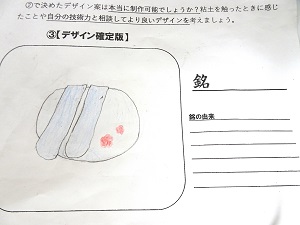 ②で決めたデザイン案は本当に制作可能でしょうか？粘土を触ったときに感じ
たことや自分の技術力と相談してより良いデザインを考えましょう。
③【デザイン確定版】
銘
銘の由来